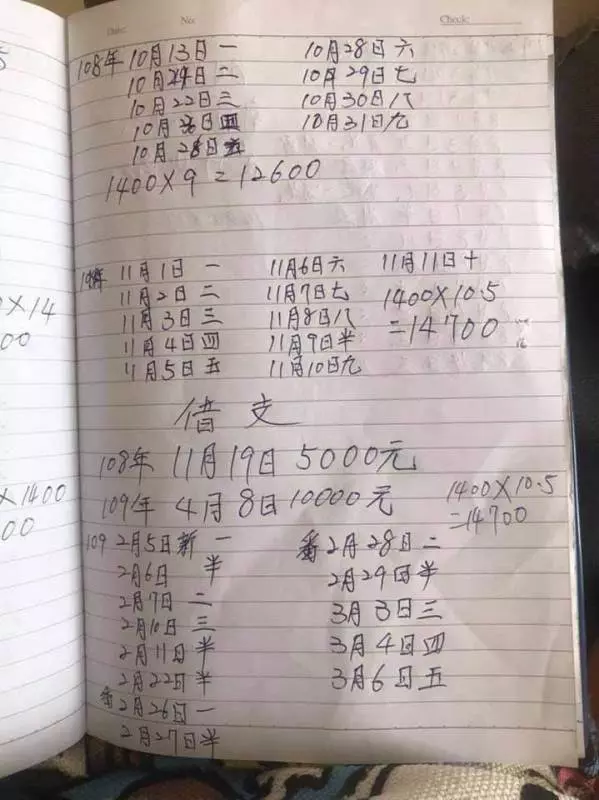 Date:
No:
Check:
108年10月13日一
10月24日二
10月22日三
10月 日四
10月28日五
10月28日六
10月29日七
10月30日八
10月31日九
1400×9=12600
11月1日 一
11月2日 二
11月3日 三
11月4日 四
11月5日 五
11月6日六
11月7日七
11月8日八
11月9日半
11月10日九
11月11日十
1400×10.5
=14700
借支
108年 11月19日 5000元
109年 4月8日10000元
1400×10.5
=14700
109 2月5日新 一
2月6日 半
2月7日 二
2月10日 三
2月11日半
2月22日半
番2月26日一
2月27日半
番2月28日二
2月29日半
3月3日三
3月4日四
3月6日五
×14
00
×1400
00